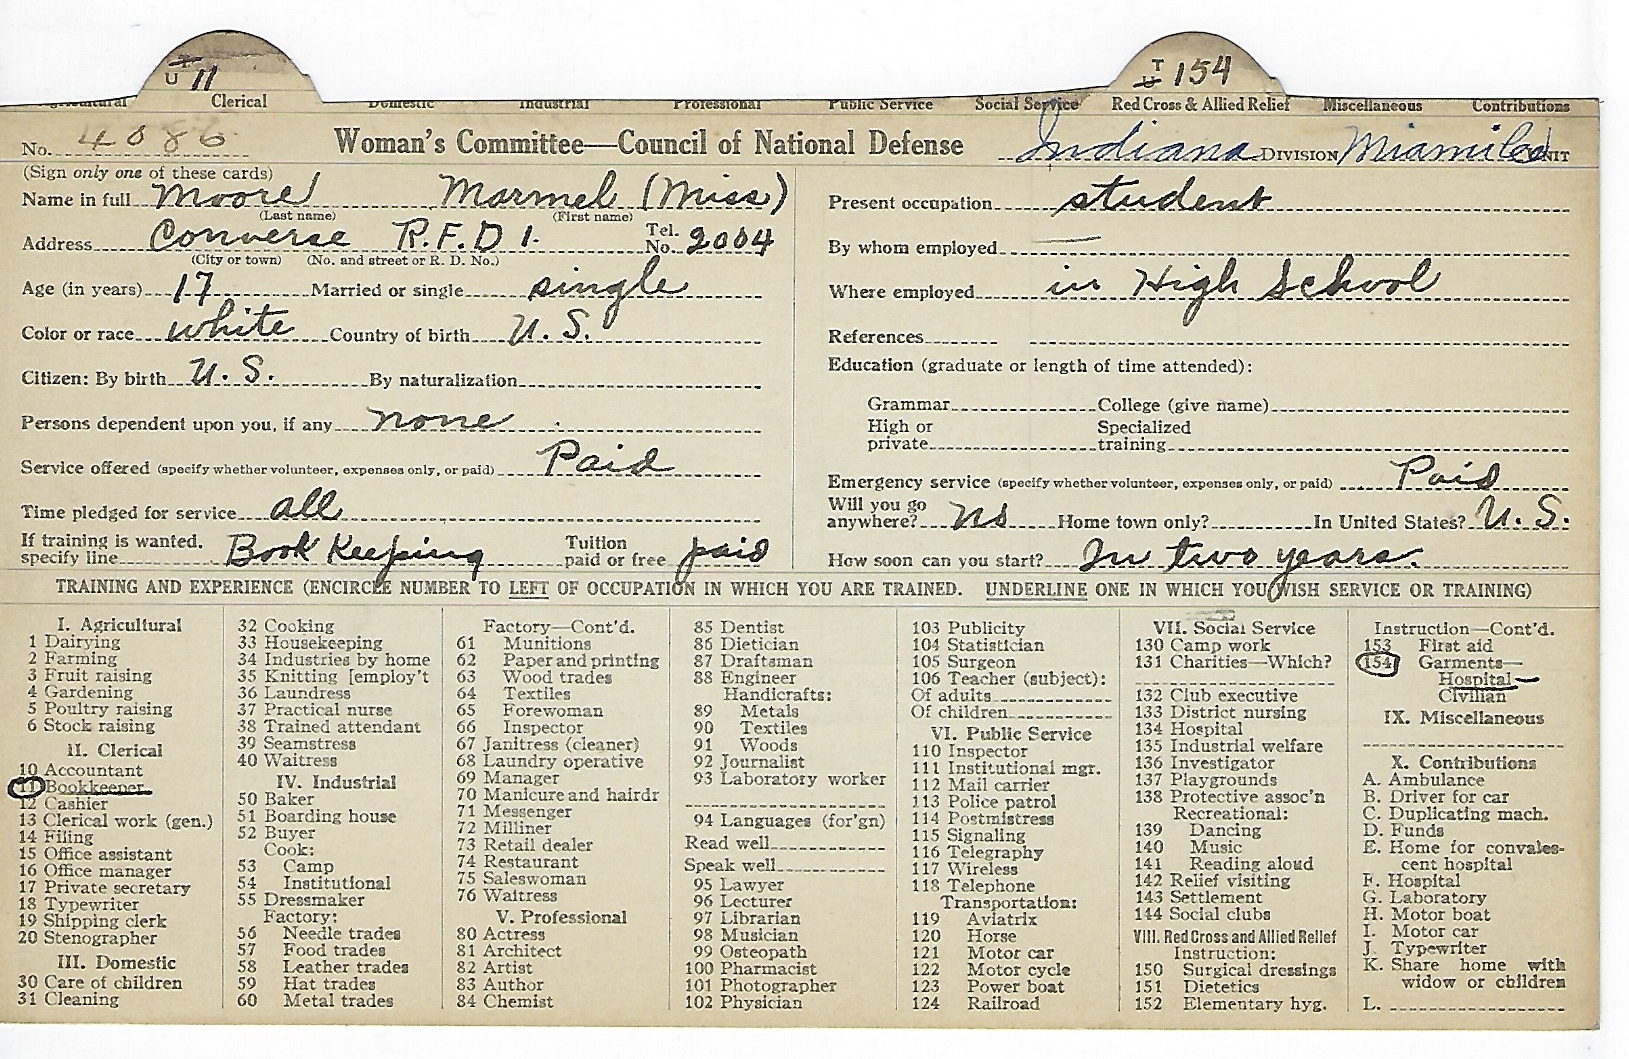 U T 11
T U 154
Agricultural Clerical Domestic Industrial Professional Public Service Social Service Red Cross & Allied Relief Miscellaneous Contributions
No. 4086 Woman's Committee—Council of National Defense Indiana DIVISION Miami Co UNIT
(Sign only one of these cards)
Name in full Moore Marmel (Miss)
(Last name) (First name)
Address Converse R.F.D 1. Tel. No. 2004
(City or town) (No. and street or R. D. No.)
Age (in years) 17 Married or single single
Color or race white Country of birth U.S.
Citizen: By birth U.S. By naturalization
Persons dependent upon you, if any none
Service offered (specify whether volunteer, expenses only, or paid) Paid
Time pledged for service all
If training is wanted, specify line Book Keeping Tuition paid or free paid
Present occupation student
By whom employed —
Where employed in High School
References
Education (graduate or length of time attended):
Grammar College (give name)
High or private Specialized training
Emergency service (specify whether volunteer, expenses only, or paid) Paid
Will you go anywhere? No Home town only? In United States? U.S.
How soon can you start? In two years.
TRAINING AND EXPERIENCE (ENCIRCLE NUMBER TO LEFT OF OCCUPATION IN WHICH YOU ARE TRAINED. UNDERLINE ONE IN WHICH YOU WISH SERVICE OR TRAINING)
I. Agricultural
1 Dairying
2 Farming
3 Fruit raising
4 Gardening
5 Poultry raising
6 Stock raising
II. Clerical
10 Accountant
11 Bookkeeper
12 Cashier
13 Clerical work (gen.)
14 Filing
15 Office assistant
16 Office manager
17 Private secretary
18 Typewriter
19 Shipping clerk
20 Stenographer
III. Domestic
30 Care of children
31 Cleaning
32 Cooking
33 Housekeeping
34 Industries by home
35 Knitting [employ't
36 Laundress
37 Practical nurse
38 Trained attendant
39 Seamstress
40 Waitress
IV. Industrial
50 Baker
51 Boarding house
52 Buyer
Cook:
53 Camp
54 Institutional
55 Dressmaker
Factory:
56 Needle trades
57 Food trades
58 Leather trades
59 Hat trades
60 Metal trades
Factory—Cont'd.
61 Munitions
62 Paper and printing
63 Wood trades
64 Textiles
65 Forewoman
66 Inspector
67 Janitress (cleaner)
68 Laundry operative
69 Manager
70 Manicure and hairdr
71 Messenger
72 Milliner
73 Retail dealer
74 Restaurant
75 Saleswoman
76 Waitress
V. Professional
80 Actress
81 Architect
82 Artist
83 Author
84 Chemist
85 Dentist
86 Dietician
87 Draftsman
88 Engineer
Handicrafts:
89 Metals
90 Textiles
91 Woods
92 Journalist
93 Laboratory worker
94 Languages (for'gn)
Read well
Speak well
95 Lawyer
96 Lecturer
97 Librarian
98 Musician
99 Osteopath
100 Pharmacist
101 Photographer
102 Physician
103 Publicity
104 Statistician
105 Surgeon
106 Teacher (subject):
Of adults
Of children
VI. Public Service
110 Inspector
111 Institutional mgr.
112 Mail carrier
113 Police patrol
114 Postmistress
115 Signaling
116 Telegraphy
117 Wireless
118 Telephone
Transportation:
119 Aviatrix
120 Horse
121 Motor car
122 Motor cycle
123 Power boat
124 Railroad
VII. Social Service
130 Camp work
131 Charities—Which?
132 Club executive
133 District nursing
134 Hospital
135 Industrial welfare
136 Investigator
137 Playgrounds
138 Protective assoc'n
Recreational:
139 Dancing
140 Music
141 Reading aloud
142 Relief visiting
143 Settlement
144 Social clubs
VIII. Red Cross and Allied Relief
Instruction:
150 Surgical dressings
151 Dietetics
152 Elementary hyg.
Instruction—Cont'd.
153 First aid
154 Garments—
Hospital
Civilian
IX. Miscellaneous
X. Contributions
A. Ambulance
B. Driver for car
C. Duplicating mach.
D. Funds
E. Home for convales-
cent hospital
F. Hospital
G. Laboratory
H. Motor boat
I. Motor car
J. Typewriter
K. Share home with
widow or children
L.